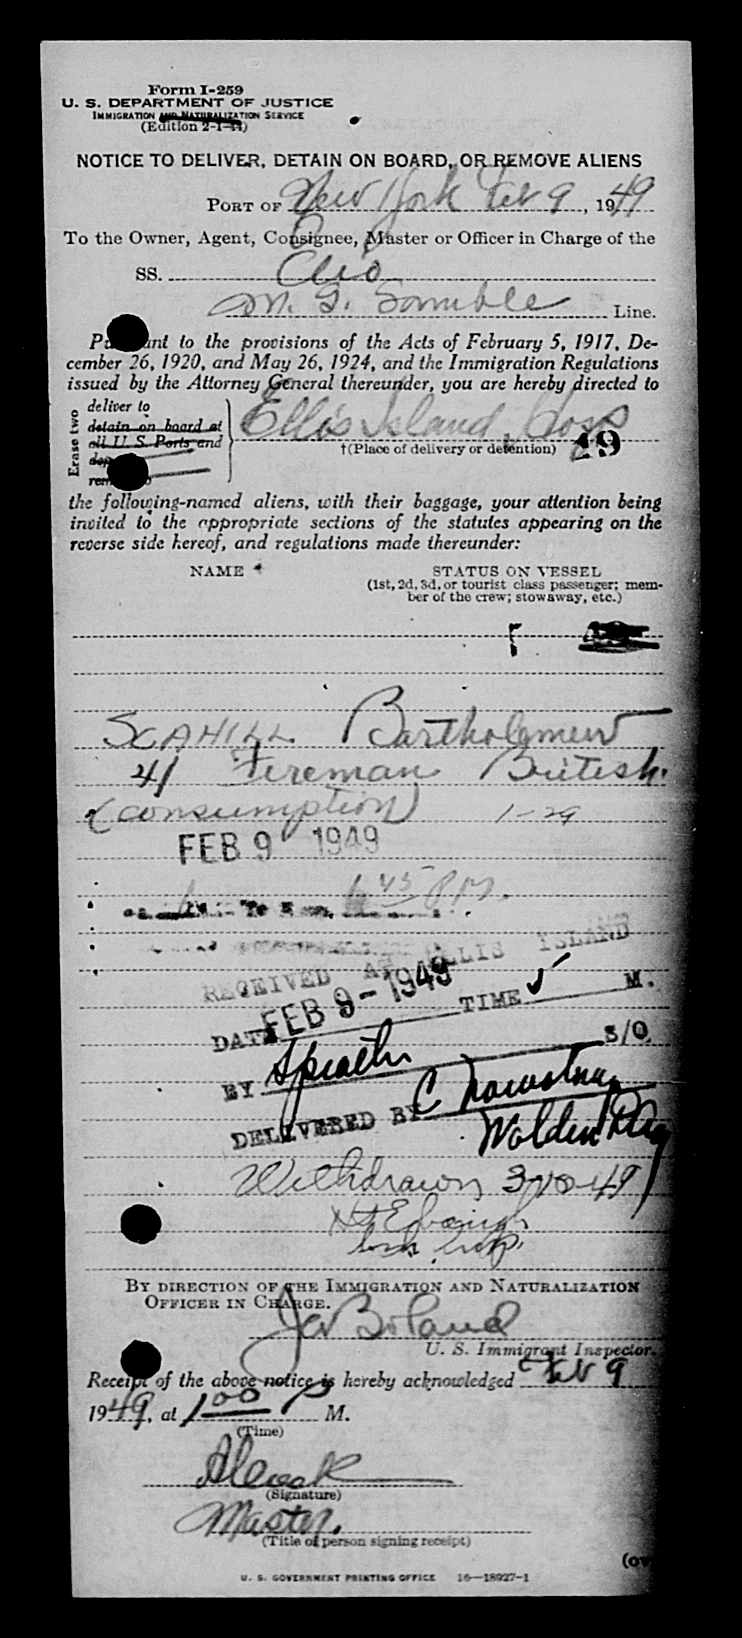 Form I-259
U. S. DEPARTMENT OF JUSTICE
IMMIGRATION AND NATURALIZATION SERVICE
(Edition 2-1-44)
NOTICE TO DELIVER, DETAIN ON BOARD, OR REMOVE ALIENS
PORT OF New York Feb 9, 1949
To the Owner, Agent, Consignee, Master or Officer in Charge of the
SS. Clio
Line.
Pursuant to the provisions of the Acts of February 5, 1917, De-
cember 26, 1920, and May 26, 1924, and the Immigration Regulations
issued by the Attorney General thereunder, you are hereby directed to
Erase two
deliver to
detain on board at
all U. S. Ports and
Ellis Island Hosp
†(Place of delivery or detention) 49
the following-named aliens, with their baggage, your attention being
invited to the appropriate sections of the statutes appearing on the
reverse side hereof, and regulations made thereunder:
NAME STATUS ON VESSEL
(1st, 2d, 3d, or tourist class passenger; mem-
ber of the crew; stowaway, etc.)
SCAHILL Bartholomew
41 Fireman British
(consumption) 1-29
FEB 9 1949
45 PM.
RECEIVED AT ELLIS ISLAND
DATE FEB 9-1949 TIME M.
BY S/O.
DELIVERED BY
Withdrawn 3/10-49
BY DIRECTION OF THE IMMIGRATION AND NATURALIZATION
OFFICER IN CHARGE.
Boland
U. S. Immigrant Inspector.
Receipt of the above notice is hereby acknowledged Feb 9
1949, at 1 00 P M.
(Time)
(Signature)
Master.
(Title of person signing receipt)
U. S. GOVERNMENT PRINTING OFFICE 16—18927-1